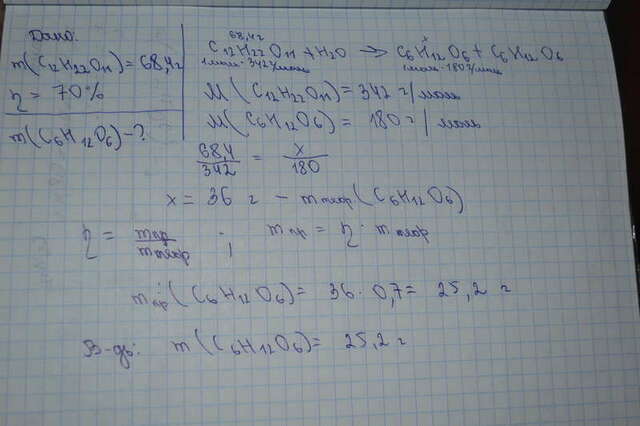 Дано:
m(C12H22O11)=68,4г
η = 70%
m(C6H12O6)-?
68,4г x
C12H22O11 + H2O → C6H12O6 + C6H12O6
1моль-342г/моль 1моль-180г/моль
M(C12H22O11)=342 г/моль
M(C6H12O6)= 180 г/моль
68,4/342 = x/180
x = 36 г - mтеор(C6H12O6)
η = mпр/mтеор ; mпр = η · mтеор
mпр(C6H12O6)= 36 · 0,7= 25,2 г
В-дь: m(C6H12O6)= 25,2 г